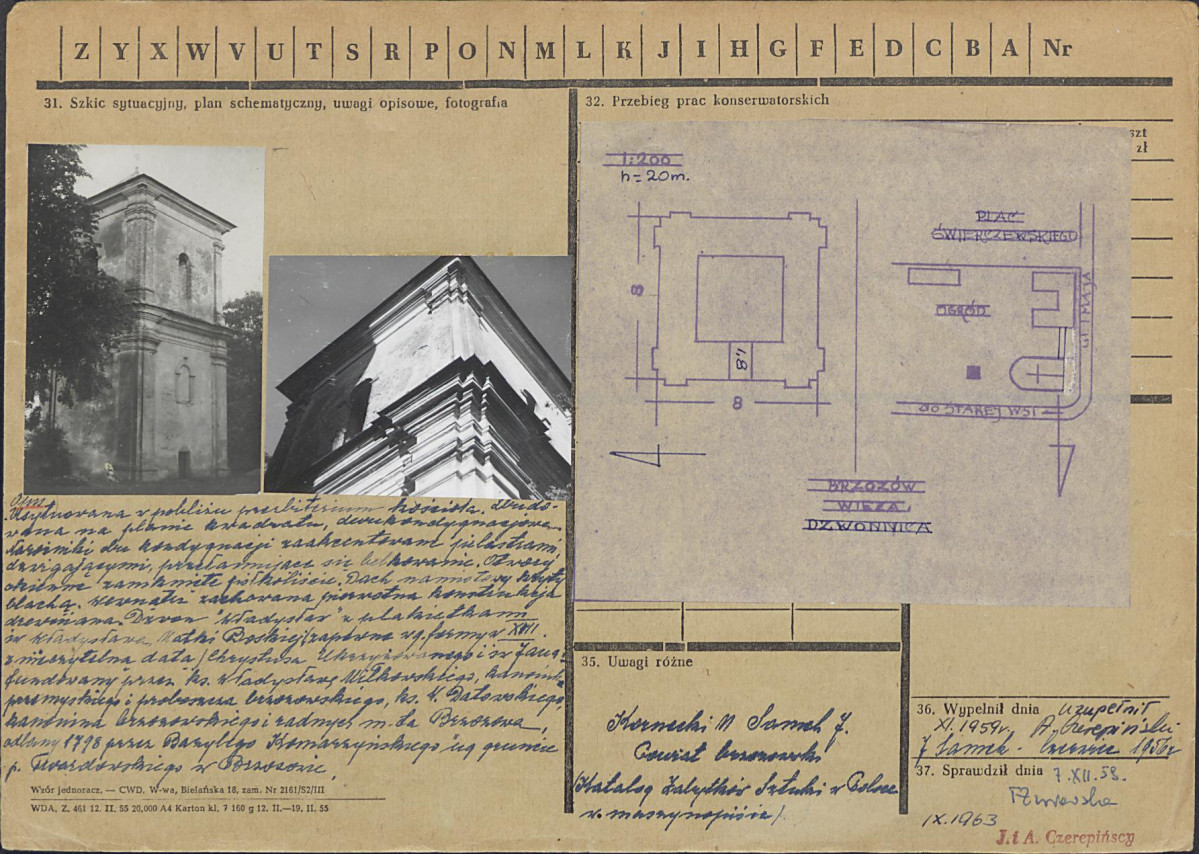 Z Y X W V U T S R P O N M L K J I H G F E D C B A Nr
31. Szkic sytuacyjny, plan schematyczny, uwagi opisowe, fotografia
32. Przebieg prac konserwatorskich
szt
zł
1:200
h=20m.
8
8
1,8
PLAC
ŚWIERCZEWSKIEGO
OGRÓD
UL 1 MAJA
DO STAREJ WSI
BRZOZÓW
WIEŻA
DZWONNICA
Usytuowana w pobliżu prezbiterium kościoła. Zbudo-
wana na planie kwadratu, dwukondygnacjowa.
Narożniki obu kondygnacji zaakcentowane pilastrami,
dźwigającymi, przełamujące się belkowanie. Otwory
okienne zamknięte półkoliście. Dach namiotowy kryty
blachą. Wewnątrz zachowana pierwotna konstrukcja
drewniana. Dzwon "Władysław" z plakietkami
św Władysława, Matki Boskiej/zapewne wg. formy w XVII.
z nieczytelną datą/Chrystusa Ukrzyżowanego i św
fundowany przez ks. Władysława Witkowskiego, kanonika
przemyskiego i proboszcza brzozowskiego, ks. W
kanonika brzozowskiego i radnych m-ta Brzozowa,
odlany 1798 przez Bazylego Komarzyńskiego
p. Twardowskiego w Brzozowie,
Wzór jednoracz. — CWD. W-wa, Bielańska 18, zam. Nr 2161/S2/III
WDA, Z. 461 12. II. 55 20,000 A4 Karton kl. 7 160 g 12. II.—19. II. 55
35. Uwagi różne
Kornecki M Samek J.
Powiat brzozowski
(Katalog Zabytków Sztuki w Polsce
w. maszynopisie)
36. Wypełnił dnia uzupełnił
XI. 1959r. A. Czerepiński
J Samek - czerwiec 1956r
37. Sprawdził dnia 7.XII.59.
IX.1963
J. i A. Czerepińscy